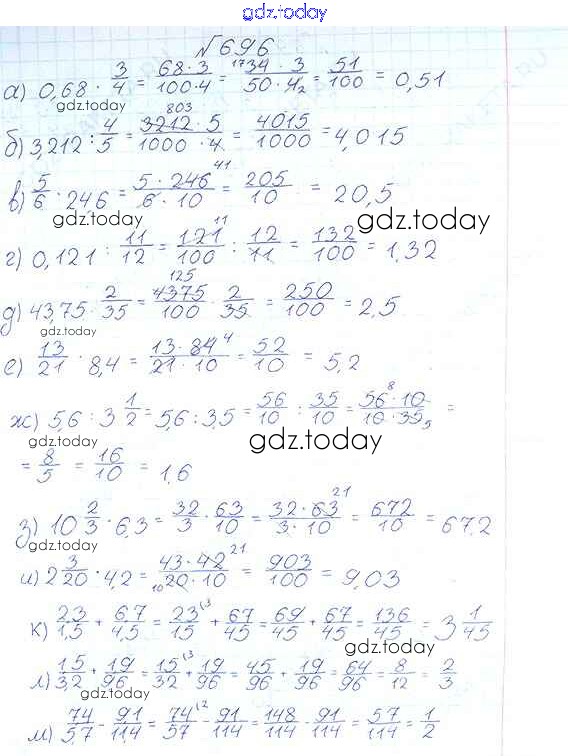 gdz.today
№696
а) 0,68 · 3/4 = 68·3/100·4 = 17 34·3/50·4 2 = 51/100 = 0,51
gdz.today
б) 3,212 : 4/5 = 803 3212·5/1000·4 = 4015/1000 = 4,015
в) 5/6 · 24,6 = 5·246 41/6·10 = 205/10 = 20,5
gdz.today
gdz.today
г) 0,121 : 11/12 = 121 11/100 : 12/11 = 132/100 = 1,32
д) 43,75 · 2/35 = 125 4375/100 · 2/35 = 250/100 = 2,5
gdz.today
е) 13/21 · 8,4 = 13·84 4/21·10 = 52/10 = 5,2
ж) 5,6 : 3 1/2 = 5,6 : 3,5 = 56/10 : 35/10 = 56 8·10/10·35 5 =
gdz.today
gdz.today
= 8/5 = 16/10 = 1,6
з) 10 2/3 · 6,3 = 32/3 · 63/10 = 32·63 21/3·10 = 672/10 = 67,2
gdz.today
и) 2 3/20 · 4,2 = 43·42 21/10 20·10 = 903/100 = 9,03
к) 23/1,5 + 6,7/4,5 = 23 3/15 + 67/45 = 69/45 + 67/45 = 136/45 = 3 1/45
gdz.today
л) 1,5/3,2 + 19/96 = 15 3/32 + 19/96 = 45/96 + 19/96 = 64/96 = 8/12 = 2/3
gdz.today
м) 7,4/5,7 - 9,1/11,4 = 74 2/57 - 91/114 = 148/114 - 91/114 = 57/114 = 1/2